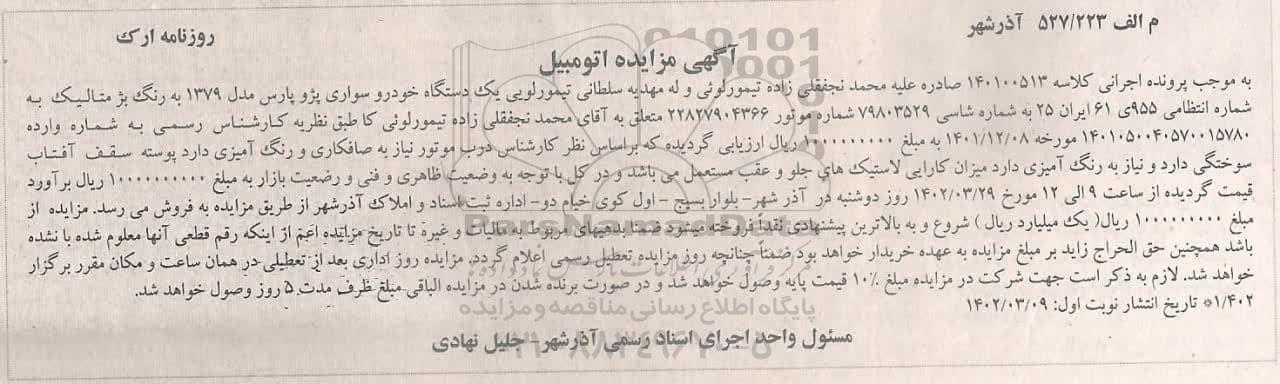 م الف ۵۲۷/۲۲۳ آذرشهر
روزنامه ارک
آگهی مزایده اتومبیل
به موجب پرونده اجرائی کلاسه ۱۴۰۱۰۰۵۱۳ صادره علیه محمد نجفقلی زاده تیمورلوئی و له مهدیه سلطانی تیمورلویی یک دستگاه خودرو سواری پژو پارس مدل ۱۳۷۹ به رنگ بژ متالیک به
شماره انتظامی ۹۵۵ی ۶۱ ایران ۲۵ به شماره شاسی ۷۹۸۰۳۵۲۹ شماره موتور ۲۲۸۲۷۹۰۴۳۶۶ متعلق به آقای محمد نجفقلی زاده تیمورلوئی کا طبق نظریه کارشناس رسمی به شماره وارده
۱۴۰۱۰۵۰۰۴۰۵۷۰۰۱۵۷۸۰ مورخه ۱۴۰۱/۱۲/۰۸ به مبلغ ۱۰۰۰۰۰۰۰۰۰ ریال ارزیابی گردیده که براساس نظر کارشناس درب موتور نیاز به صافکاری و رنگ آمیزی دارد پوسته سقف آفتاب
سوختگی دارد و نیاز به رنگ آمیزی دارد میزان کارایی لاستیک های جلو و عقب مستعمل می باشد و در کل با توجه به وضعیت ظاهری و فنی و رضعیت بازار به مبلغ ۱۰۰۰۰۰۰۰۰۰ ریال برآورد
قیمت گردیده از ساعت ۹ الی ۱۲ مورخ ۱۴۰۲/۰۳/۲۹ روز دوشنبه در آذر شهر- بلوار بسیج - اول کوی خیام دو- اداره ثبت اسناد و املاک آذرشهر از طریق مزایده به فروش می رسد. مزایده از
مبلغ ۱۰۰۰۰۰۰۰۰۰ ریال( یک میلیارد ریال ) شروع و به بالاترین پیشنهادی نقداً فروخته میشود ضمنا بدهیهای مربوط به مالیات و غیره تا تاریخ مزایده اعم از اینکه رقم قطعی آنها معلوم شده یا نشده
باشد همچنین حق الحراج زاید بر مبلغ مزایده به عهده خریدار خواهد بود ضمناً چنانچه روز مزایده تعطیل رسمی اعلام گردد. مزایده روز اداری بعد از تعطیلی در همان ساعت و مکان مقرر برگزار
خواهد شد. لازم به ذکر است جهت شرکت در مزایده مبلغ ۱۰٪ قیمت پایه وصول خواهد شد و در صورت برنده شدن در مزایده الباقی مبلغ ظرف مدت ۵ روز وصول خواهد شد.
۱/۴۰۲* تاریخ انتشار نوبت اول: ۱۴۰۲/۰۳/۰۹
پایگاه اطلاع رسانی مناقصه و مزایده
مسئول واحد اجرای اسناد رسمی آذرشهر- جلیل نهادی